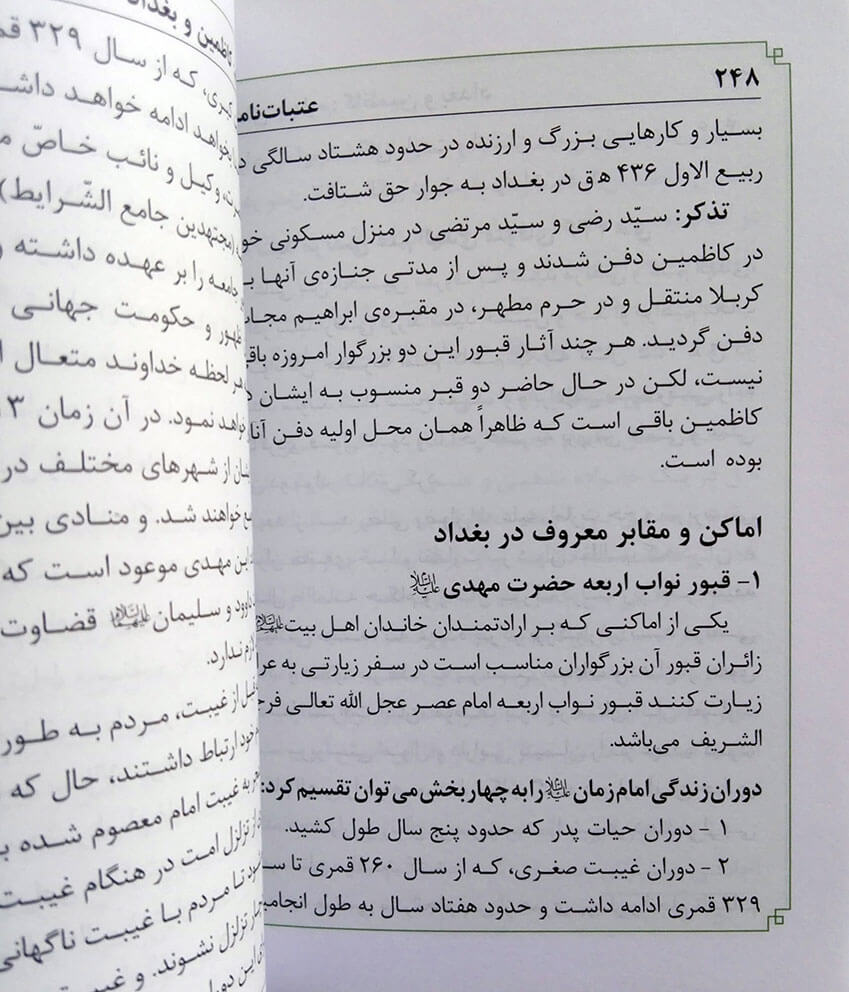 ۲۴۸
عتبات‌نامه
بسیار و کارهایی بزرگ و ارزنده در حدود هشتاد سالگی در
ربیع الاول ۴۳۶ ه‍ ق در بغداد به جوار حق شتافت.
تذکر: سیّد رضی و سیّد مرتضی در منزل مسکونی خود
در کاظمین دفن شدند و پس از مدتی جنازه‌ی آنها به
کربلا منتقل و در حرم مطهر، در مقبره‌ی ابراهیم مجاب
دفن گردید. هر چند آثار قبور این دو بزرگوار امروزه باقی
نیست، لکن در حال حاضر دو قبر منسوب به ایشان در
کاظمین باقی است که ظاهراً همان محل اولیه دفن آنان
بوده است.
اماکن و مقابر معروف در بغداد
۱- قبور نواب اربعه حضرت مهدی علیه‌السلام
یکی از اماکنی که بر ارادتمندان خاندان اهل بیت علیهم‌السلام
زائران قبور آن بزرگواران مناسب است در سفر زیارتی به
زیارت کنند قبور نواب اربعه امام عصر عجل الله تعالی
الشریف می‌باشد.
دوران زندگی امام زمان علیه‌السلام را به چهار بخش می‌توان تقسیم کرد:
۱ - دوران حیات پدر که حدود پنج سال طول کشید.
۲ - دوران غیبت صغری، که از سال ۲۶۰ قمری تا
۳۲۹ قمری ادامه داشت و حدود هفتاد سال به طول
کاظمین و بغداد
کبری، که از سال ۳۲۹
خواهد ادامه خواهد
وکیل و نائب خاصّ
(مجتهدین جامع الشّرایط)
جامعه را بر عهده داشته
ظهور و حکومت جهانی
هر لحظه خداوند متعال
خواهد نمود. در آن زمان
از شهرهای مختلف در
خواهند شد. و منادی بین
این مهدی موعود است که
داوود و سلیمان علیهماالسلام قضاوت
ندارد.
از غیبت، مردم به طور
خود ارتباط داشتند، حال که
به غیبت امام معصوم شده
از تزلزل امت در هنگام غیبت
تا مردم با غیبت ناگهانی
تزلزل نشوند. و
این